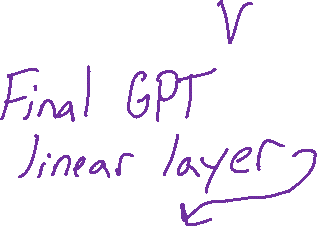 V
Final GPT
linear layer